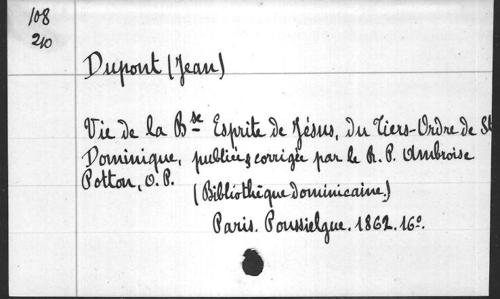 108
210
Dupont (Jean)
Vie de la Bse Esprite de Jésus, du Tiers-Ordre de St
Dominique, publiée & corrigée par le R. P. Ambroise
Potton, O. P.
(Bibliothèque dominicaine.)
Paris. Poussielgue. 1862. 16o.